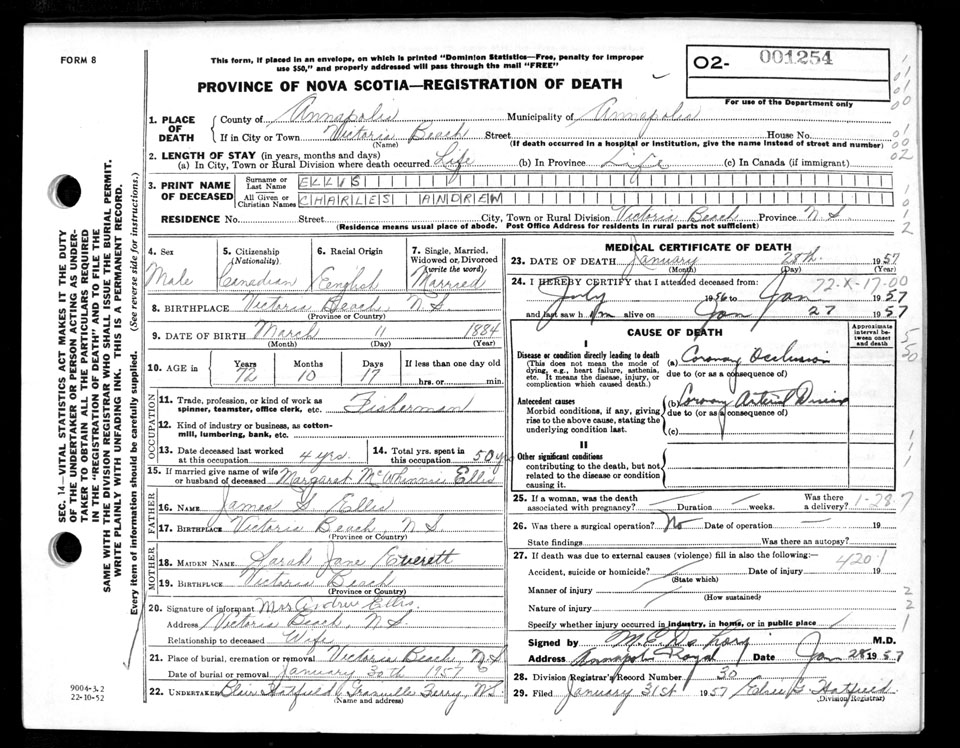 FORM 8
This form, if placed in an envelope, on which is printed "Dominion Statistics—Free, penalty for improper
use $50," and properly addressed will pass through the mail "FREE"
PROVINCE OF NOVA SCOTIA—REGISTRATION OF DEATH
O2- 001254
For use of the Department only
1. PLACE OF DEATH
County of Annapolis Municipality of Annapolis
If in City or Town Victoria Beach Street House No.
(Name) (If death occurred in a hospital or institution, give the name instead of street and number)
2. LENGTH OF STAY (in years, months and days)
(a) In City, Town or Rural Division where death occurred Life (b) In Province Life (c) In Canada (if immigrant)
3. PRINT NAME OF DECEASED
Surname or Last Name ELLIS
All Given or Christian Names CHARLES ANDREW
RESIDENCE No. Street City, Town or Rural Division Victoria Beach Province N S
(Residence means usual place of abode. Post Office Address for residents in rural parts not sufficient)
4. Sex
Male
5. Citizenship
(Nationality)
Canadian
6. Racial Origin
English
7. Single, Married,
Widowed or Divorced
(write the word)
Married
8. BIRTHPLACE Victoria Beach, N S
(Province or Country)
9. DATE OF BIRTH March 11 1884
(Month) (Day) (Year)
10. AGE in
Years 72
Months 10
Days 17
If less than one day old
hrs. or min.
OCCUPATION
11. Trade, profession, or kind of work as
spinner, teamster, office clerk, etc. Fisherman
12. Kind of industry or business, as cotton-
mill, lumbering, bank, etc.
13. Date deceased last worked
at this occupation 4 yrs.
14. Total yrs. spent in
this occupation 50 yrs
15. If married give name of wife
or husband of deceased Margaret McWhinnie Ellis
FATHER
16. NAME James S Ellis
17. BIRTHPLACE Victoria Beach, N S
(Province or Country)
MOTHER
18. MAIDEN NAME Sarah Jane Everett
19. BIRTHPLACE Victoria Beach
(Province or Country)
20. Signature of informant Mrs Andrew Ellis.
Address Victoria Beach, N.S.
Relationship to deceased Wife
21. Place of burial, cremation or removal Victoria Beach, N S
Date of burial or removal January 30th 1957
22. UNDERTAKER Blair Hatfield, Granville Ferry, N.S.
(Name and address)
MEDICAL CERTIFICATE OF DEATH
23. DATE OF DEATH January 28th 1957
(Month) (Day) (Year)
24. I HEREBY CERTIFY that I attended deceased from: 72-X-17-00
July 1956 to Jan 1957
and last saw him alive on Jan 27 1957
CAUSE OF DEATH
Approximate
interval be-
tween onset
and death
I
Disease or condition directly leading to death
(This does not mean the mode of
dying, e.g., heart failure, asthenia,
etc. It means the disease, injury, or
complication which caused death.)
(a) Coronary Occlusion
due to (or as a consequence of)
Antecedent causes
Morbid conditions, if any, giving
rise to the above cause, stating the
underlying condition last.
(b) Coronary Arterial Disease
due to (or as a consequence of)
(c)
II
Other significant conditions
contributing to the death, but not
related to the disease or condition
causing it.
25. If a woman, was the death
associated with pregnancy? Duration weeks. Was there
a delivery? 1-28-7
26. Was there a surgical operation? No Date of operation — 19
State findings Was there an autopsy?
27. If death was due to external causes (violence) fill in also the following:
Accident, suicide or homicide? Date of injury 19
420-1
(State which)
Manner of injury
(How sustained)
Nature of injury
Specify whether injury occurred in industry, in home, or in public place
Signed by M.D.
Address Annapolis Royal Date Jan 28 1957
28. Division Registrar's Record Number 30
29. Filed January 31st 1957 Elsie G. Hatfield
(Division Registrar)
SEC. 14—VITAL STATISTICS ACT MAKES IT THE DUTY
OF THE UNDERTAKER OR PERSON ACTING AS UNDER-
TAKER TO OBTAIN ALL THE PARTICULARS REQUIRED
IN THE "REGISTRATION OF DEATH" AND TO FILE THE
SAME WITH THE DIVISION REGISTRAR WHO SHALL ISSUE THE BURIAL PERMIT.
WRITE PLAINLY WITH UNFADING INK. THIS IS A PERMANENT RECORD.
Every item of information should be carefully supplied. (See reverse side for instructions.)
9004-3.2
22-10-52